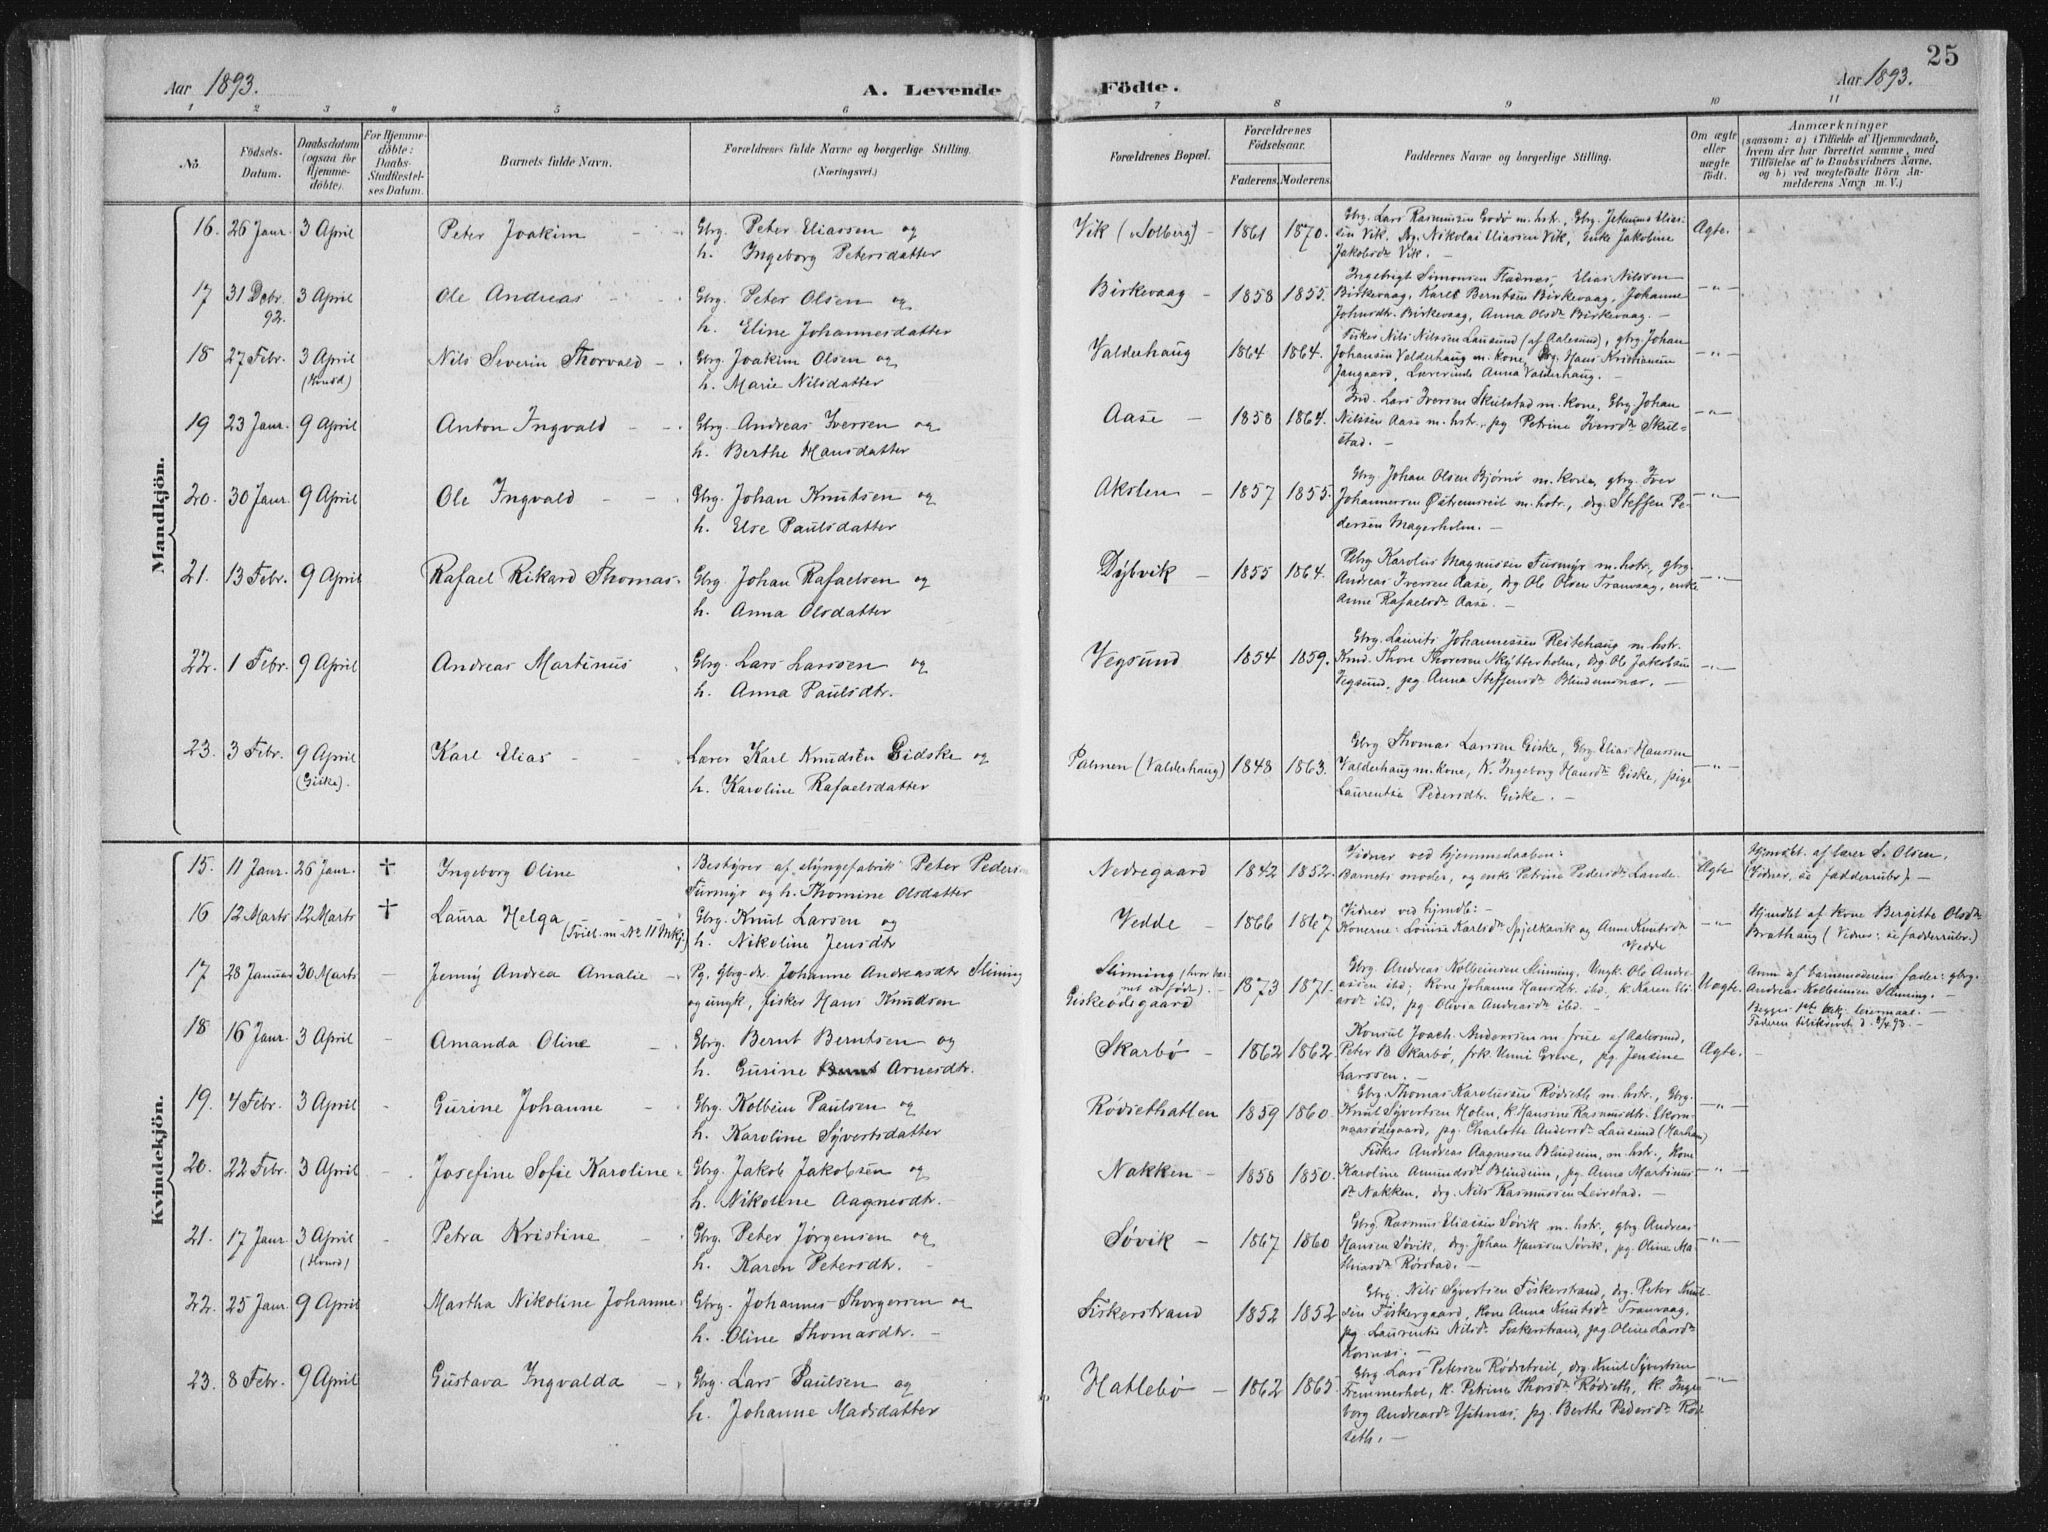 Aar 1893. A. Levende Födte. Aar 1893. 25
1 2 3 4 5 6 7 8 9 10 11
No. Födsels-Datum. Daabsdatum (ogsaa for Hjemmedöbte). For Hjemmedöbte: Daabs-Stadfæstelses Datum. Barnets fulde Navn. Forældrenes fulde Navne og borgerlige Stilling. (Næringsvei.) Forældrenes Bopæl. Forældrenes Födselsaar. Faderens. Moderens. Faddernes Navne og borgerlige Stilling. Om ægte eller uægte födt. Anmærkninger (saasom: a) i Tilfælde af Hjemmedaab, hvem der har forrettet samme, med Tilföielse af to Daabsvidners Navne, og b) ved uægtefödte Börn Anmelderens Navn m. V.)
Mandkjön.
16. 26 Janr. 3 April Peter Joakim Gbrg. Peter Eliassen og
h. Ingeborg Petersdatter
Vik (Solberg) 1861 1870. Gbrg. Lars Rasmussen Godø m. hstr., Gbrg. Jetmund Elias-
sen Vik, drg. Nikolai Eliassen Vik, Enke Jakobine
Jakobsdr Vik. Ægte.
17 31 Decbr. 92. 3 April Ole Andreas Gbrg. Peter Olsen og
h. Eline Johannesdatter
Birkevaag 1858 1855. Ingebrigt Simonsen Fladnæs, Elias Nilssen
Birkevaag, Karl Berntsen Birkevaag, Johanne
Johnsdtr. Birkevaag, Anna Olsdr Birkevaag. -"-
18 27 Febr. 3 April Nils Severin Thorvald Gbrg. Joakim Olsen og
h. Marie Nilsdatter
Valderhaug 1864 1864. Fisker Nils Nilssen Lausund (af Aalesund), gbrg Johan
Johansen Valderhaug m. kone, drg. Hans Kristiansen
Jangaard, Lærerinde Anna Valderhaug. -"-
19 23 Janr. 9 April Anton Ingvald Gbrg. Andreas Iversen og
h. Berthe Hansdatter
Aase 1858 1864. Ind. Lars Iversen Skulstad m. kone, Gbrg. Johan
Nilssen Aase m. hstr., pg Petrine Iversdr Skul-
stad. -"-
20. 30 Janr. 9 April Ole Ingvald Gbrg. Johan Knutsen og
h. Else Paulsdatter
Akslen 1857 1855. Gbrg Johan Olsen Bjørnø m. kone, gbrg. Iver
Johannessen Østremsreit m. hstr., drg. Steffen Pe-
dersen Magerholm. -"-
21. 13 Febr. 9 April Rafael Rikard Thomas Gbrg. Johan Rafaelsen og
h. Anna Olsdatter
Dybvik 1855 1864. Gbrg Karolus Magnussen Furmyr m. hstr., gbrg.
Andreas Iversen Aase, drg Ole Olsen Tranvaag, enke
Anne Rafaelsdr Aase. -"-
22. 1 Febr. 9 April Andreas Martinus Gbrg. Lars Larssen og
h. Anna Paulsdtr.
Vegsund 1854 1859. Gbrg. Laurits Johannessen Reitehaug m. hstr.
Kmd. Thore Thoresen Skytterholm, drg Ole Jakobsen
Vegsund, pg Anna Steffensdr Blindemsnær. -"-
23. 3 Febr. 9 April (Giske). Karl Elias Lærer Karl Knudsen Gidske og
h. Karoline Rafaelsdatter
Palmen (Valderhaug) 1848 1863. Gbrg Thomas Larssen Giske, Gbrg. Elias Hanssen
Valderhaug m. kone, K. Ingeborg Hansdr Giske, pige
Laurentse Pedersdtr. Giske. -"-
Kvindekjön.
15. 11 Janr. 26 Janr. † Ingeborg Oline Bestyrer af slyngefabrik Peter Pedersen
Furmyr og h. Thomine Olsdatter
Nedregaard 1842 1852. Vidner ved hjemmedaaben:
Barnets moder, og enke Petrine Pedersdr Lande. Ægte Hjmdbt. af lærer S. Olsen,
(Vidner, se fadderrubr.)
16 12 Marts 12 Marts † Laura Helga (Tvil. m. No 11 Mkj.) Gbrg. Knut Larsen og
h. Nikoline Jensdtr
Vedde 1866 1867 Vidner ved hjmdb:
Konerne: Louise Karlsdr Spjelkavik og Anne Knutsdr
Vedde -"- Hjmdbt af kone Bergitte Olsdr
Brathaug (Vidner: se fadderrubr.)
17 28 Januar 30 Marts Jenny Andrea Amalie Pg. Gbrg-dr. Johanne Andreasdtr Slinning
og ungk. fisker Hans Knudsen
Slinning (hvor bar-
net er født).
Giskeødegaard 1873 1871. Gbrg Andreas Kolbeinsen Slinning, Ungk. Ole Andre-
assen ibd; Kone Johanne Hansdtr. ibd, k. Karen Eli-
asdr ibd, pg Olivia Andreasdr ibd. Uægte. Anm af barnemoderens fader: gbrg.
Andreas Kolbeinsen Slinning.
Begges 1ste lejermaal.
18 16 Janr. 3 April Amanda Oline Gbrg. Bernt Berntsen og
h. Gurine Arnesdtr.
Skarbø 1862 1862 Konsul Joach. Anderssen m. frue af Aalesund,
Peter B. Skarbø, frk. Unni Greve, pg Jensine
Larssen. Ægte.
19. 4 Febr. 3 April Gurine Johanne Gbrg. Kolbein Paulsen og
h. Karoline Syvertsdatter
Rødsethatlen 1859 1860. Gbrg. Thomas Karolussen Rødseth m. hstr., Gbrg.
Knut Syvertsen Holen, k. Hansine Rasmusdtr. Ekorn-
naasødegaard, pg. Charlotte Andersdr Lausund -"-
20. 22 Febr. 3 April Josefine Sofie Karoline Gbrg. Jakob Jakobsen og
h. Nikoline Aagnesdtr.
Nakken 1858 1850. Fisker Andreas Aagnesen Blindeim, m. hstr., Kone
Karoline Amundsdr Blindeim, pg Anne Martinus-
dr Nakken, drg. Nils Rasmussen Leirstad. -"-
21. 17 Janr. 3 April Petra Kristine Gbrg. Peter Jørgensen og
h. Karen Petersdtr.
Søvik 1867 1860 Gbrg Rasmus Eliassen Søvik m. hstr., gbrg Andreas
Hansen Søvik, drg. Johan Hanssen Søvik, pg. Oline Ma-
thiasdr Rørstad. -"-
22. 25 Janr. 9 April Martha Nikoline Johanne Gbrg. Johannes Thorgersen og
h. Oline Thomasdtr.
Fiskerstrand 1852 1852 Gbrg. Nils Syvertsen Fiskerstrand, drg. Peter Knut-
sen Fiskergaard, kone Anna Knutsdr Tranvaag,
pg. Laurentse Nilsdr Fiskerstrand, pg Oline Larsdr
Kornæs.
23. 8 Febr. 9 April Gustava Ingvalda Gbrg. Lars Paulsen og
h. Johanne Madsdatter
Hatlebø 1862 1865 Gbrg. Lars Petersen Rødsetreit, drg. Knut Syvertsen
Fremmerhol, k. Petrine Thorsdr Rødseth, k. Inge-
borg Andreasdr Ytrenæs, pg. Berthe Pedersdr Rød-
seth. -"-